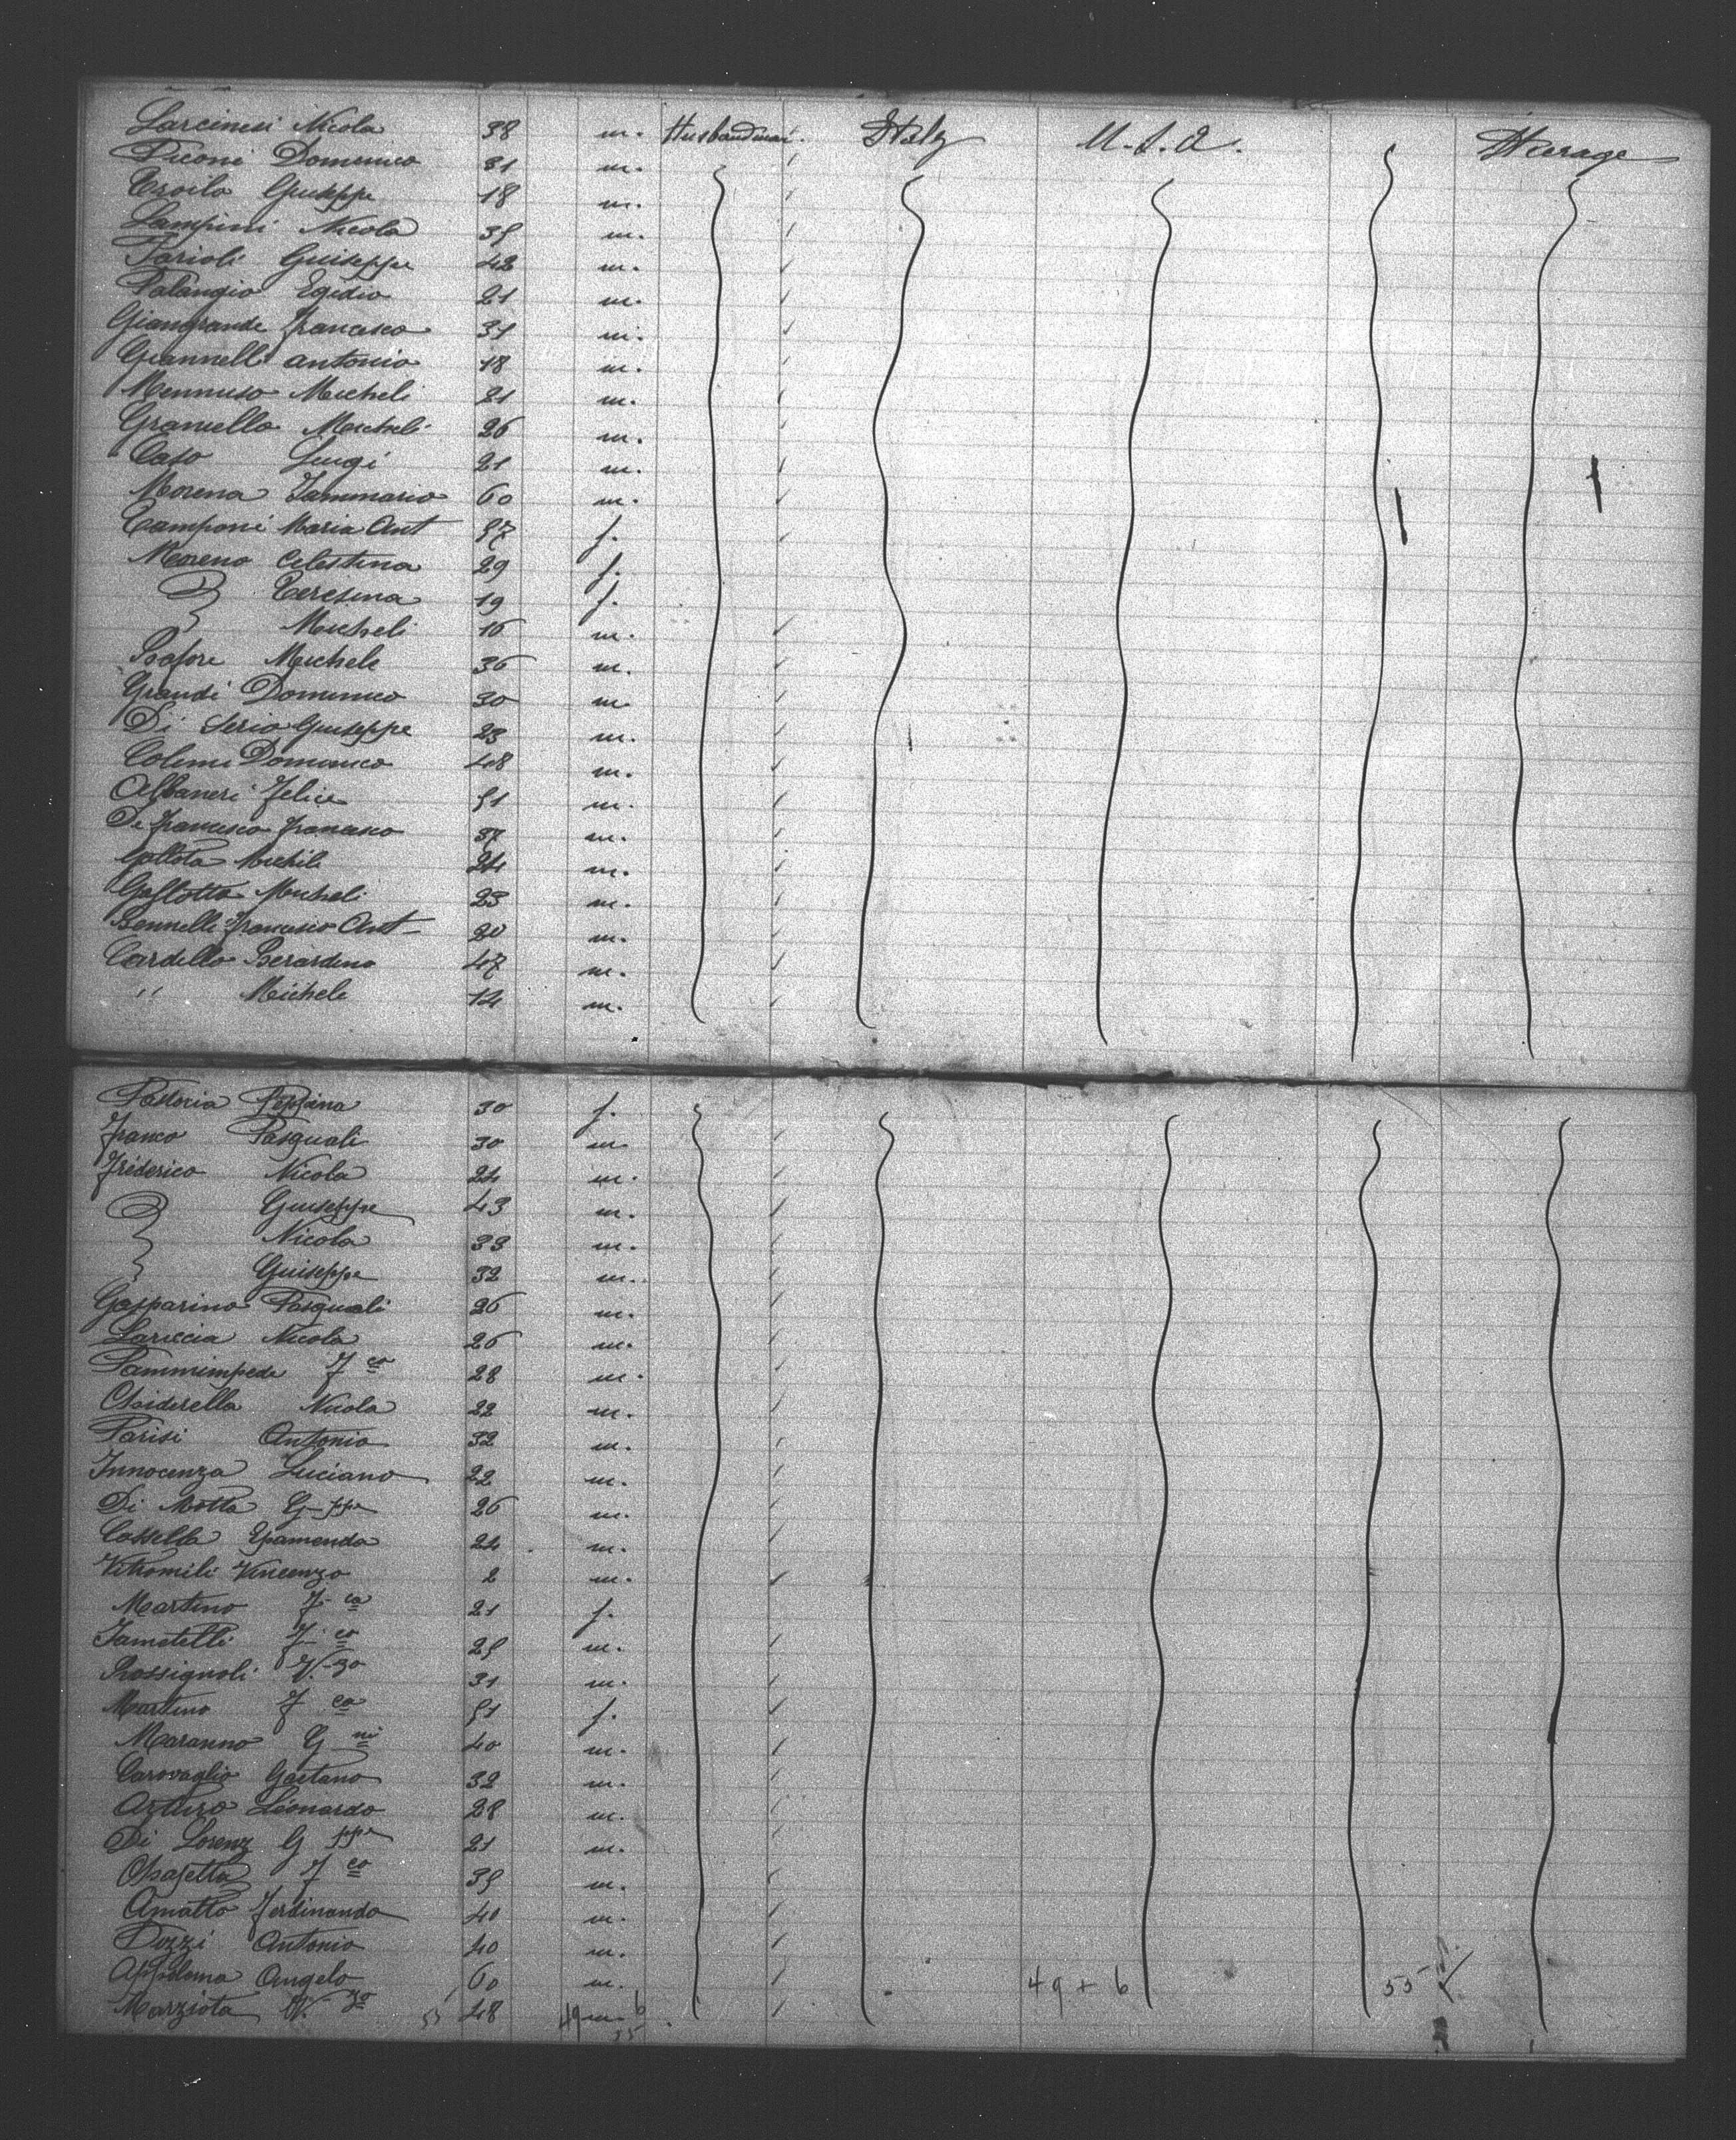 Larcinesi Nicola 38 m. Husbandman. Italy U.S.A. Steerage
Piconi Domenico 31 m.
Troilo Guiseppe 18 m.
Lampini Nicola 35 m.
Farioli Guiseppe 42 m.
Palangio Egidio 21 m.
Giangrande Francesco 31 m.
Giannelli Antonio 18 m.
Mennuso Micheli 21 m.
Graniello Micheli 26 m.
Caso Luigi 21 m.
Morena Jammario 60 m.
Camponi Maria Ant 57 f.
Moreno Celestina 29 f.
Teresina 19 f.
Micheli 16 m.
Michele 36 m.
Grandi Domenico 30 m.
Di Serio Guiseppe 23 m.
Colemi Domenico 48 m.
Albaneri Felice 51 m.
De Francesco Francesco 37 m.
Gallota Micheli 24 m.
Gallotta Micheli 23 m.
Francesco Ant 20 m.
Cardello Berardino 47 m.
" Michele 14 m.
Pastoria 30 f.
Franco Pasquali 30 m
Friderico Nicola 24 m.
Guiseppe 43 m.
Nicola 33 m.
Guiseppe 32 m.
Gasparino Pasquali 26 m.
Lariccia Nicola 26 m.
Pammimpede F co 28 m.
Chiderella Nicola 22 m.
Parisi Antonio 32 m.
Innocenza Luciano 22 m.
Di Motta G-ppe 26 m.
Cassella Epamenda 24 m.
Vitromili Vincenzo 2 m.
Martino F- ca 21 f.
Jametelli F- co 25 m.
Rossignoli V.-zo 31 m.
Martino F ca 51 f.
Maranno G ni 40 m.
Carovaglio Gaetano 32 m.
Arturo Leonardo 28 m.
Di Lorenz G ppe 21 m.
Chiafetta F co 35 m.
Amatto Ferdinando 40 m.
Dozzi Antonio 40 m.
Appoloma Angelo 60 m. 49 + 6 55
Marziota V. zo 55 48 49 m. 6
55